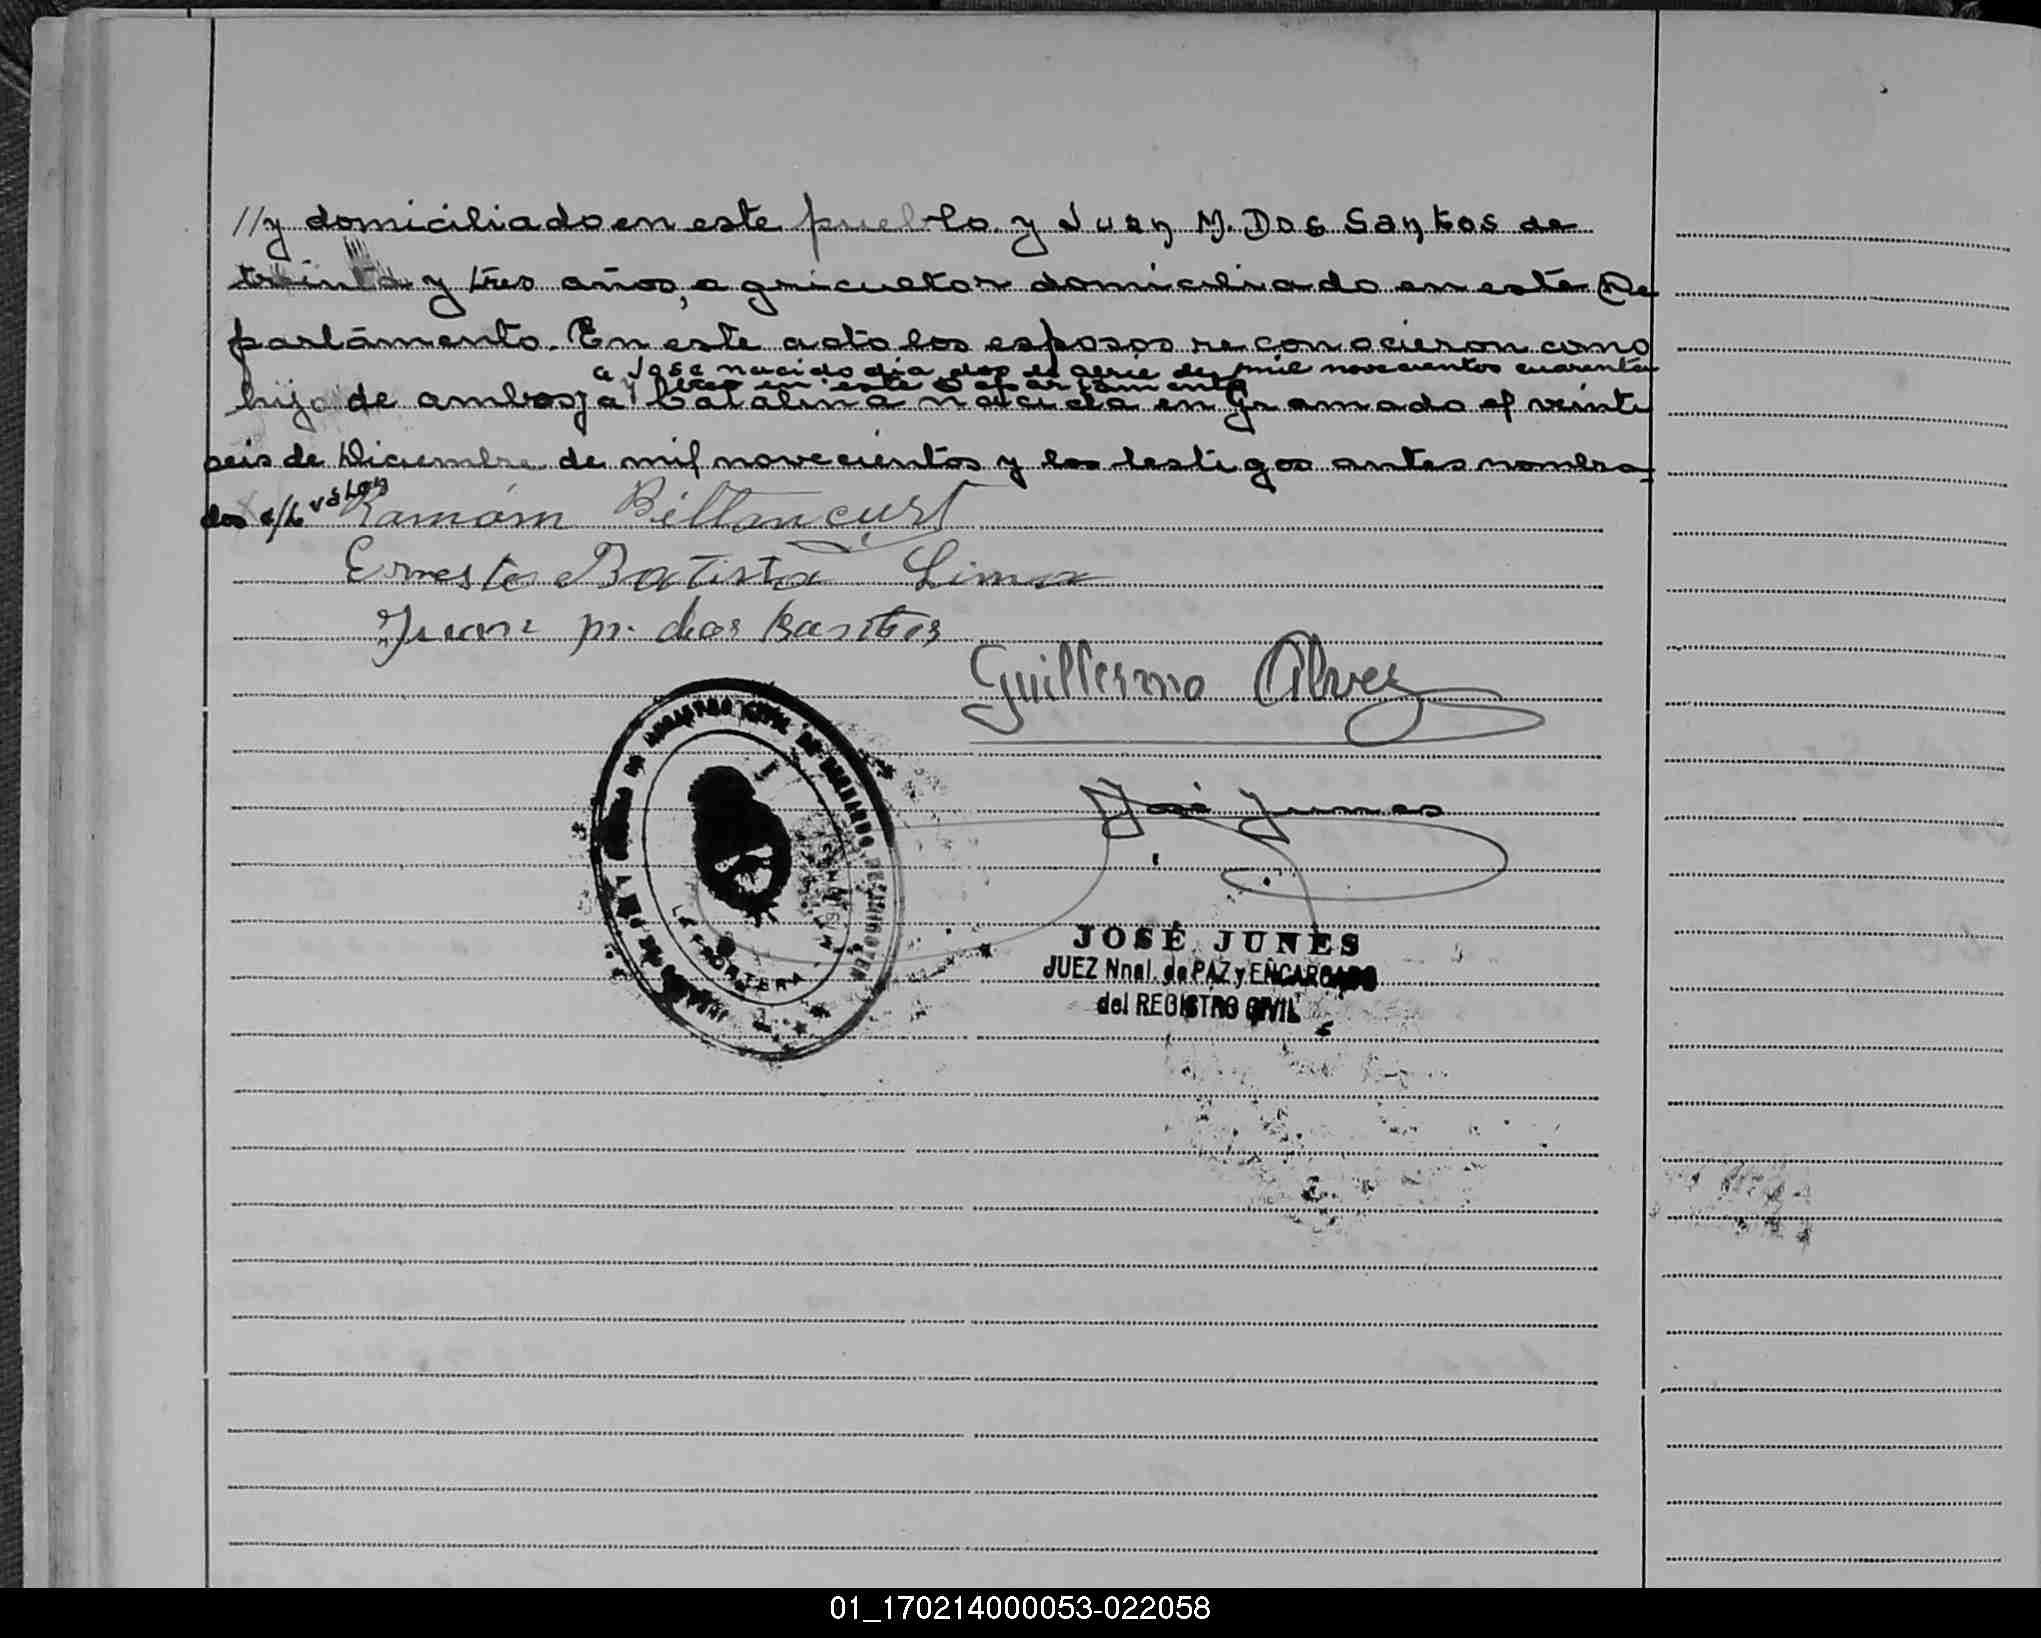 //y domiciliado en este pueblo y Juan M. Dos Santos de
treinta y tres años, agricultor domiciliado en este De
partamento. En este acto los esposos reconocieron como
a José nacido día dos de de mil novecientos cuarenta
y en este Departamento
hijo de ambos, a Catalina nacida en Gramado el veinte
seis de Diciembre de mil novecientos y los testigos antes nombra
dos e/l valen
Ramóm Bittancurt
Ernesto Batista Lima
Juan m. dos Santos
Guillermo Alvez
José Junes
REGISTRO CIVIL DE BERNARDO
LA PORTERA
JOSÉ JUNES
JUEZ Nnal. de PAZ y ENCARGADO
del REGISTRO CIVIL
01_170214000053-022058